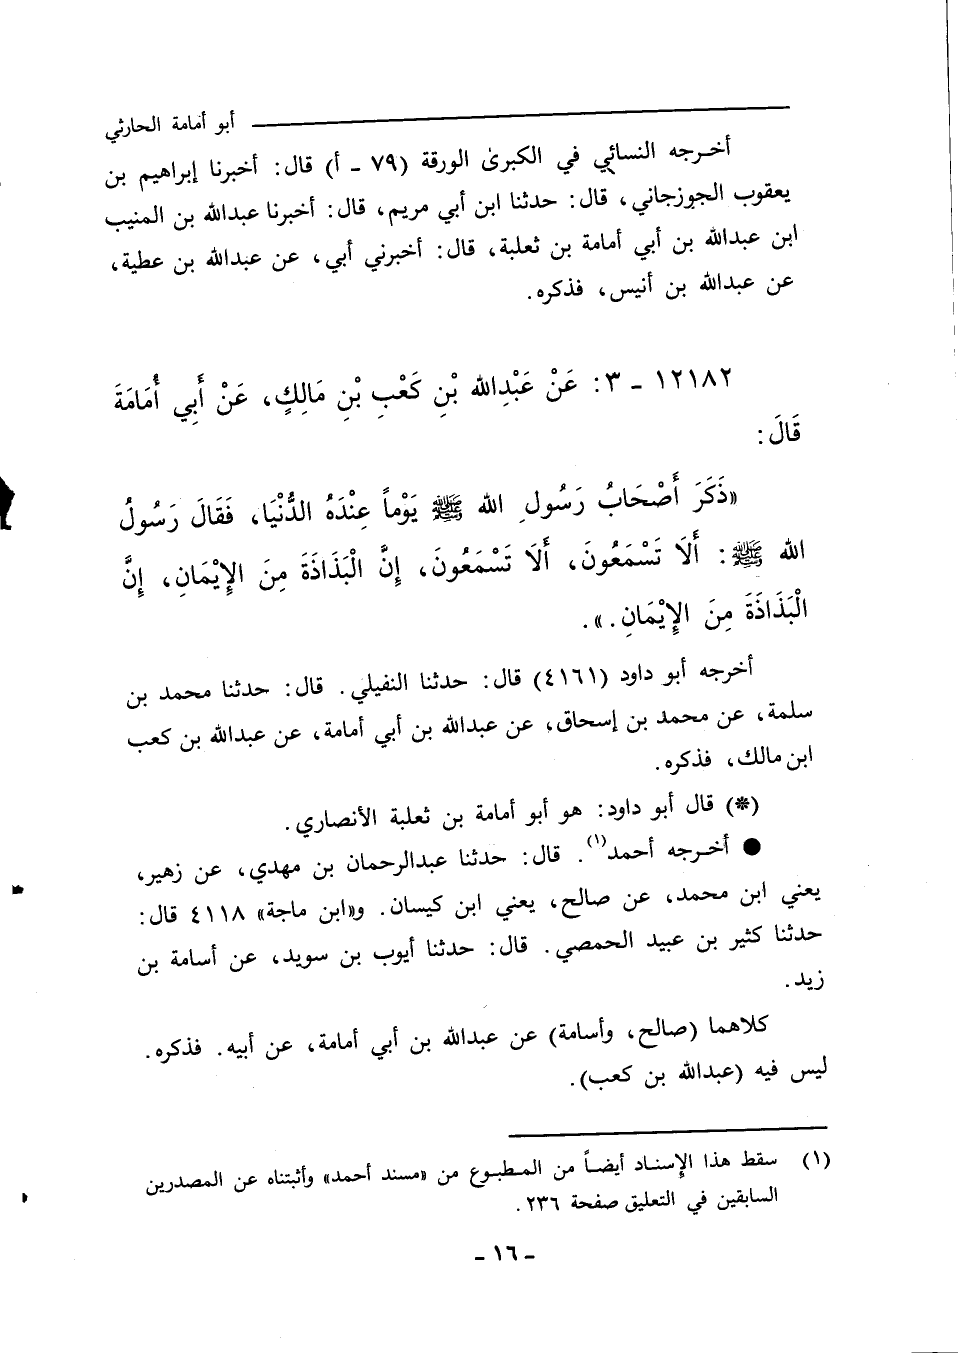 أبو أمامة الحارثي
أخرجه النسائي في الكبرىٰ الورقة (٧٩ ـ أ) قال: أخبرنا إبراهيم بن
يعقوب الجوزجاني، قال: حدثنا ابن أبي مريم، قال: أخبرنا عبدالله بن المنيب
ابن عبدالله بن أبي أمامة بن ثعلبة، قال: أخبرني أبي، عن عبدالله بن عطية،
عن عبدالله بن أنيس، فذكره.
١٢١٨٢ ـ ٣: عَنْ عَبْدِالله بْنِ كَعْبِ بْنِ مَالِكٍ، عَنْ أَبِي أُمَامَةَ
قَالَ:
«ذَكَرَ أَصْحَابُ رَسُولِ الله ﷺ يَوْماً عِنْدَهُ الدُّنْيَا، فَقَالَ رَسُولُ
الله ﷺ: أَلَا تَسْمَعُونَ، أَلَا تَسْمَعُونَ، إِنَّ الْبَذَاذَةَ مِنَ الإِيْمَانِ، إِنَّ
الْبَذَاذَةَ مِنَ الإِيْمَانِ.».
أخرجه أبو داود (٤١٦١) قال: حدثنا النفيلي. قال: حدثنا محمد بن
سلمة، عن محمد بن إسحاق، عن عبدالله بن أبي أمامة، عن عبدالله بن كعب
ابن مالك، فذكره.
(*) قال أبو داود: هو أبو أمامة بن ثعلبة الأنصاري.
● أخرجه أحمد(١). قال: حدثنا عبدالرحمان بن مهدي، عن زهير،
يعني ابن محمد، عن صالح، يعني ابن كيسان. و«ابن ماجة» ٤١١٨ قال:
حدثنا كثير بن عبيد الحمصي. قال: حدثنا أيوب بن سويد، عن أسامة بن
زيد.
كلاهما (صالح، وأسامة) عن عبدالله بن أبي أمامة، عن أبيه. فذكره.
ليس فيه (عبدالله بن كعب).
(١) سقط هذا الإسناد أيضاً من المطبوع من «مسند أحمد» وأثبتناه عن المصدرين
السابقين في التعليق صفحة ٢٣٦.
ـ ١٦ ـ